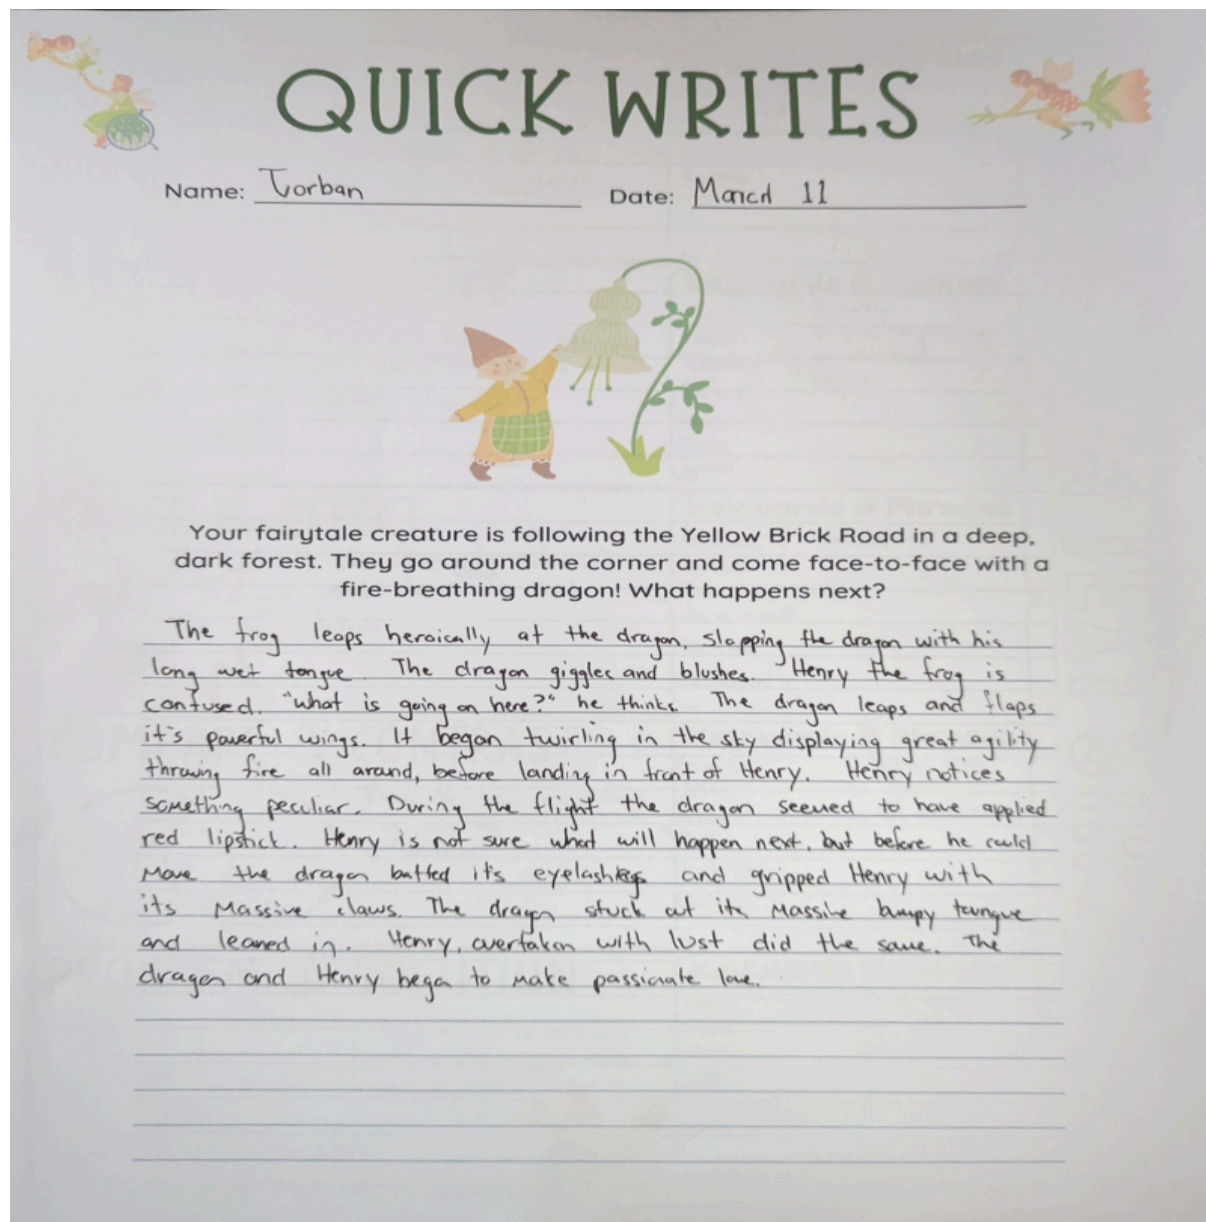 QUICK WRITES
Name: Torban Date: March 11
Your fairytale creature is following the Yellow Brick Road in a deep,
dark forest. They go around the corner and come face-to-face with a
fire-breathing dragon! What happens next?
The frog leaps heroically at the dragon, slapping the dragon with his
long wet tongue. The dragon giggles and blushes. Henry the frog is
confused. "What is going on here?" he thinks. The dragon leaps and flaps
it's powerful wings. It began twirling in the sky displaying great agility
throwing fire all around, before landing in front of Henry. Henry notices
something peculiar. During the flight the dragon seemed to have applied
red lipstick. Henry is not sure what will happen next, but before he could
move the dragon batted it's eyelashes and gripped Henry with
its massive claws. The dragon stuck out its massive bumpy toungue
and leaned in. Henry, overtaken with lust did the same. The
dragon and Henry began to make passionate love.